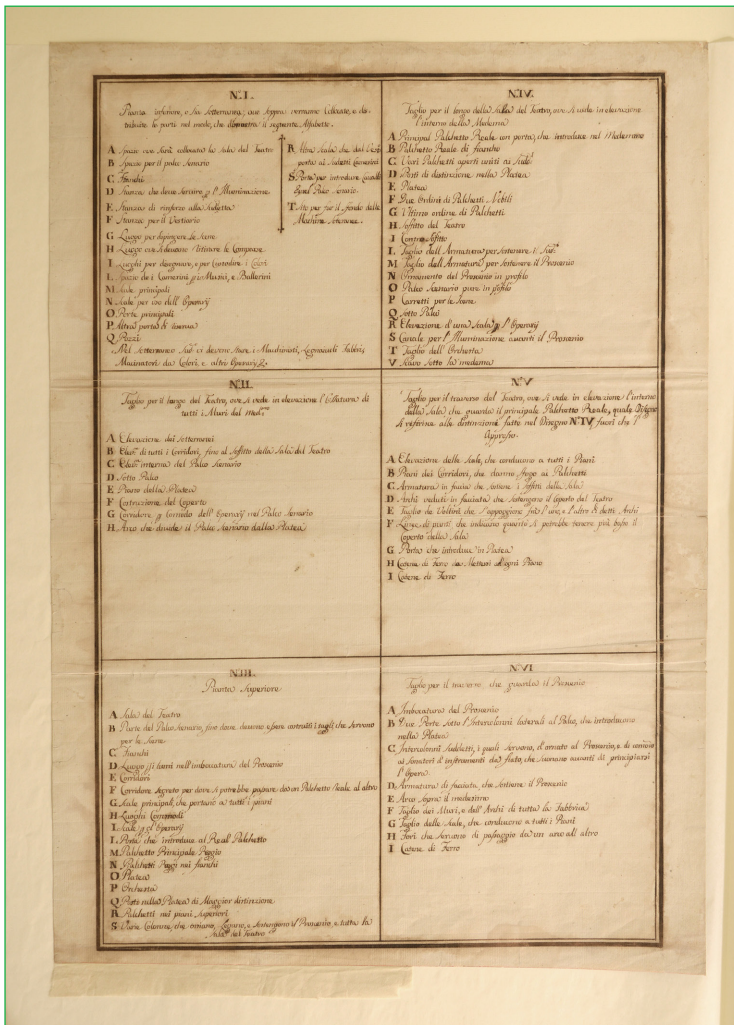 N.º I.
Pianta inferiore, o sia sotterranea, ove sopra verranno collocate, e dis-
tribuite le parti nel modo, che dimostra il seguente Alfabetto.
A Spazio ove sarà collocata la Sala del Teatro
B Spazio per il palco Scenario
C Fianchi
D Stanza che deve servire p l'Illuminazione
E Stanza di rinforzo alla Sudetta
F Stanze per il Vestiario
G Luogo per dipingere le Scene
H
I Luoghi per disegnare, e per Custodire i Colori
L Spazio de i Camerini p i Musici, e Ballerini
M Scale principali
N Scale per uso dell' Operarij
O Porte principali
P Altra porta di riserva
Q Pozzi
Nel Sotterraneo ci devono stare i Machinisti, Legnaiuoli Fabbri,
Macinatori da Colori, e altri Operarij &c.
R Altra Scala che dal
porta ai Sudetti Camerini
S Porta per introdurre Cavalli
Palco Scenario.
T Sito per far il fondo delle
Machine
N.º II.
Taglio per il lungo del Teatro, ove si vede in elevazione l'ossatura di
tutti i Muri del med.mo
A Elevazione dei Sotterranei
B Elev.e di tutti i Corridori, fino al Soffitto della Sala del Teatro
C Elev.e interna del Palco Scenario
D Sotto Palco
E Piano della Platea
F Costruzione del Coperto
G Corridore p comodo dell' Operarij nel Palco Scenario
H Arco che divide il Palco Scenario dalla Platea
N.º III.
Pianta Superiore
A Sala del Teatro
B Parte del Palco Scenario, fino dove devono essere costrutti i tagli che servono
per le Scene
C Fianchi
D Luogo p i lumi nell'imboccatura del Proscenio
E Corridori
F Corridore segreto per dove si potrebbe passare da un Palchetto Reale al altro
G Scale principali, che portano a tutti i piani
H Luoghi Commodi
I Scale p gl' Operarij
L Porta che introduce al Real Palchetto
M Palchetto Principale Reggio
N Palchetti Reggi nei fianchi
O Platea
P Orchestra
Q Posti nella Platea di Maggior distinzione
R Palchetti nei piani Superiori
S Varie Colonne, che ornano, legano, e sostengono il Proscenio, e tutta la
Sala del Teatro
N.º IV.
Taglio per il longo della Salla del Teatro, ove si vede in elevazione
l'interno della Medema
A Principal Palchetto Reale con porta, che introduce nel Medesimo
B Palchetto Reale di fianco
C Varii Palchetti aperti uniti ai Sud.i
D Posti di distinzione nella Platea
E Platea
F Due Ordini di Palchetti Nobili
G Ultimo ordine di Palchetti
H Soffitto del Teatro
I Contro Soffitto
L Taglio dell'Armatura per sostenere i Sud.i
M Taglio dell'Armatura per sostenere il Proscenio
N Ornamento del Proscenio in profilo
O Palco Scenario pure in profilo
P Carretti per le Scene
Q Sotto Palco
R Elevazione d'una Scala p l'Operarij
S Canale per l'Illuminazione avanti il Proscenio
T Taglio dell' Orchestra
V Scavo sotto la medema
N.º V
Taglio per il traverso del Teatro, ove si vede in elevazione l'interno
della Sala che guarda il principale Palchetto Reale, quale Disegno
si referisce alle distinzioni fatte nel Disegno N.º IV fuori che l'
Appresso.
A Elevazione delle Scale, che conducono a tutti i Piani
B Piani dei Corridori, che danno sfogo ai Palchetti
C Armatura in faccia che sostiene i Soffitti della Sala
D Archi veduti in facciata che sostengono il Coperto del Teatro
E Taglio de Voltini che s'appoggiano frà l'uno, e l'altro di detti Archi
F Linea di punti che indicano quanto si potrebbe tenere più basso il
Coperto della Sala
G Porta che introduce in Platea
H Catene di Ferro da Mettersi ad ogni Piano
I Catene di Ferro
N.º VI
Taglio per il traverso che guarda il Proscenio
A Imboccatura del Proscenio
B Due Porte sotto l'Intercolonni laterali al Palco, che introducono
nella Platea
C Intercolonni Suddetti, i quali servono, d'ornato al Proscenio, e di comodo
ai Sonatori d'instrumenti da fiato, che suonano avanti di principiarsi
l'Opera.
D Armatura di facciata, che sostiene il Proscenio
E Arco sopra il medesimo
F Taglio dei Muri, e dell' Archi di tutta la Fabbrica
G Taglio delle Scale, che conducono a tutti i Piani
H Fori che servono di passaggio da un arco all' altro
I Catene di Ferro